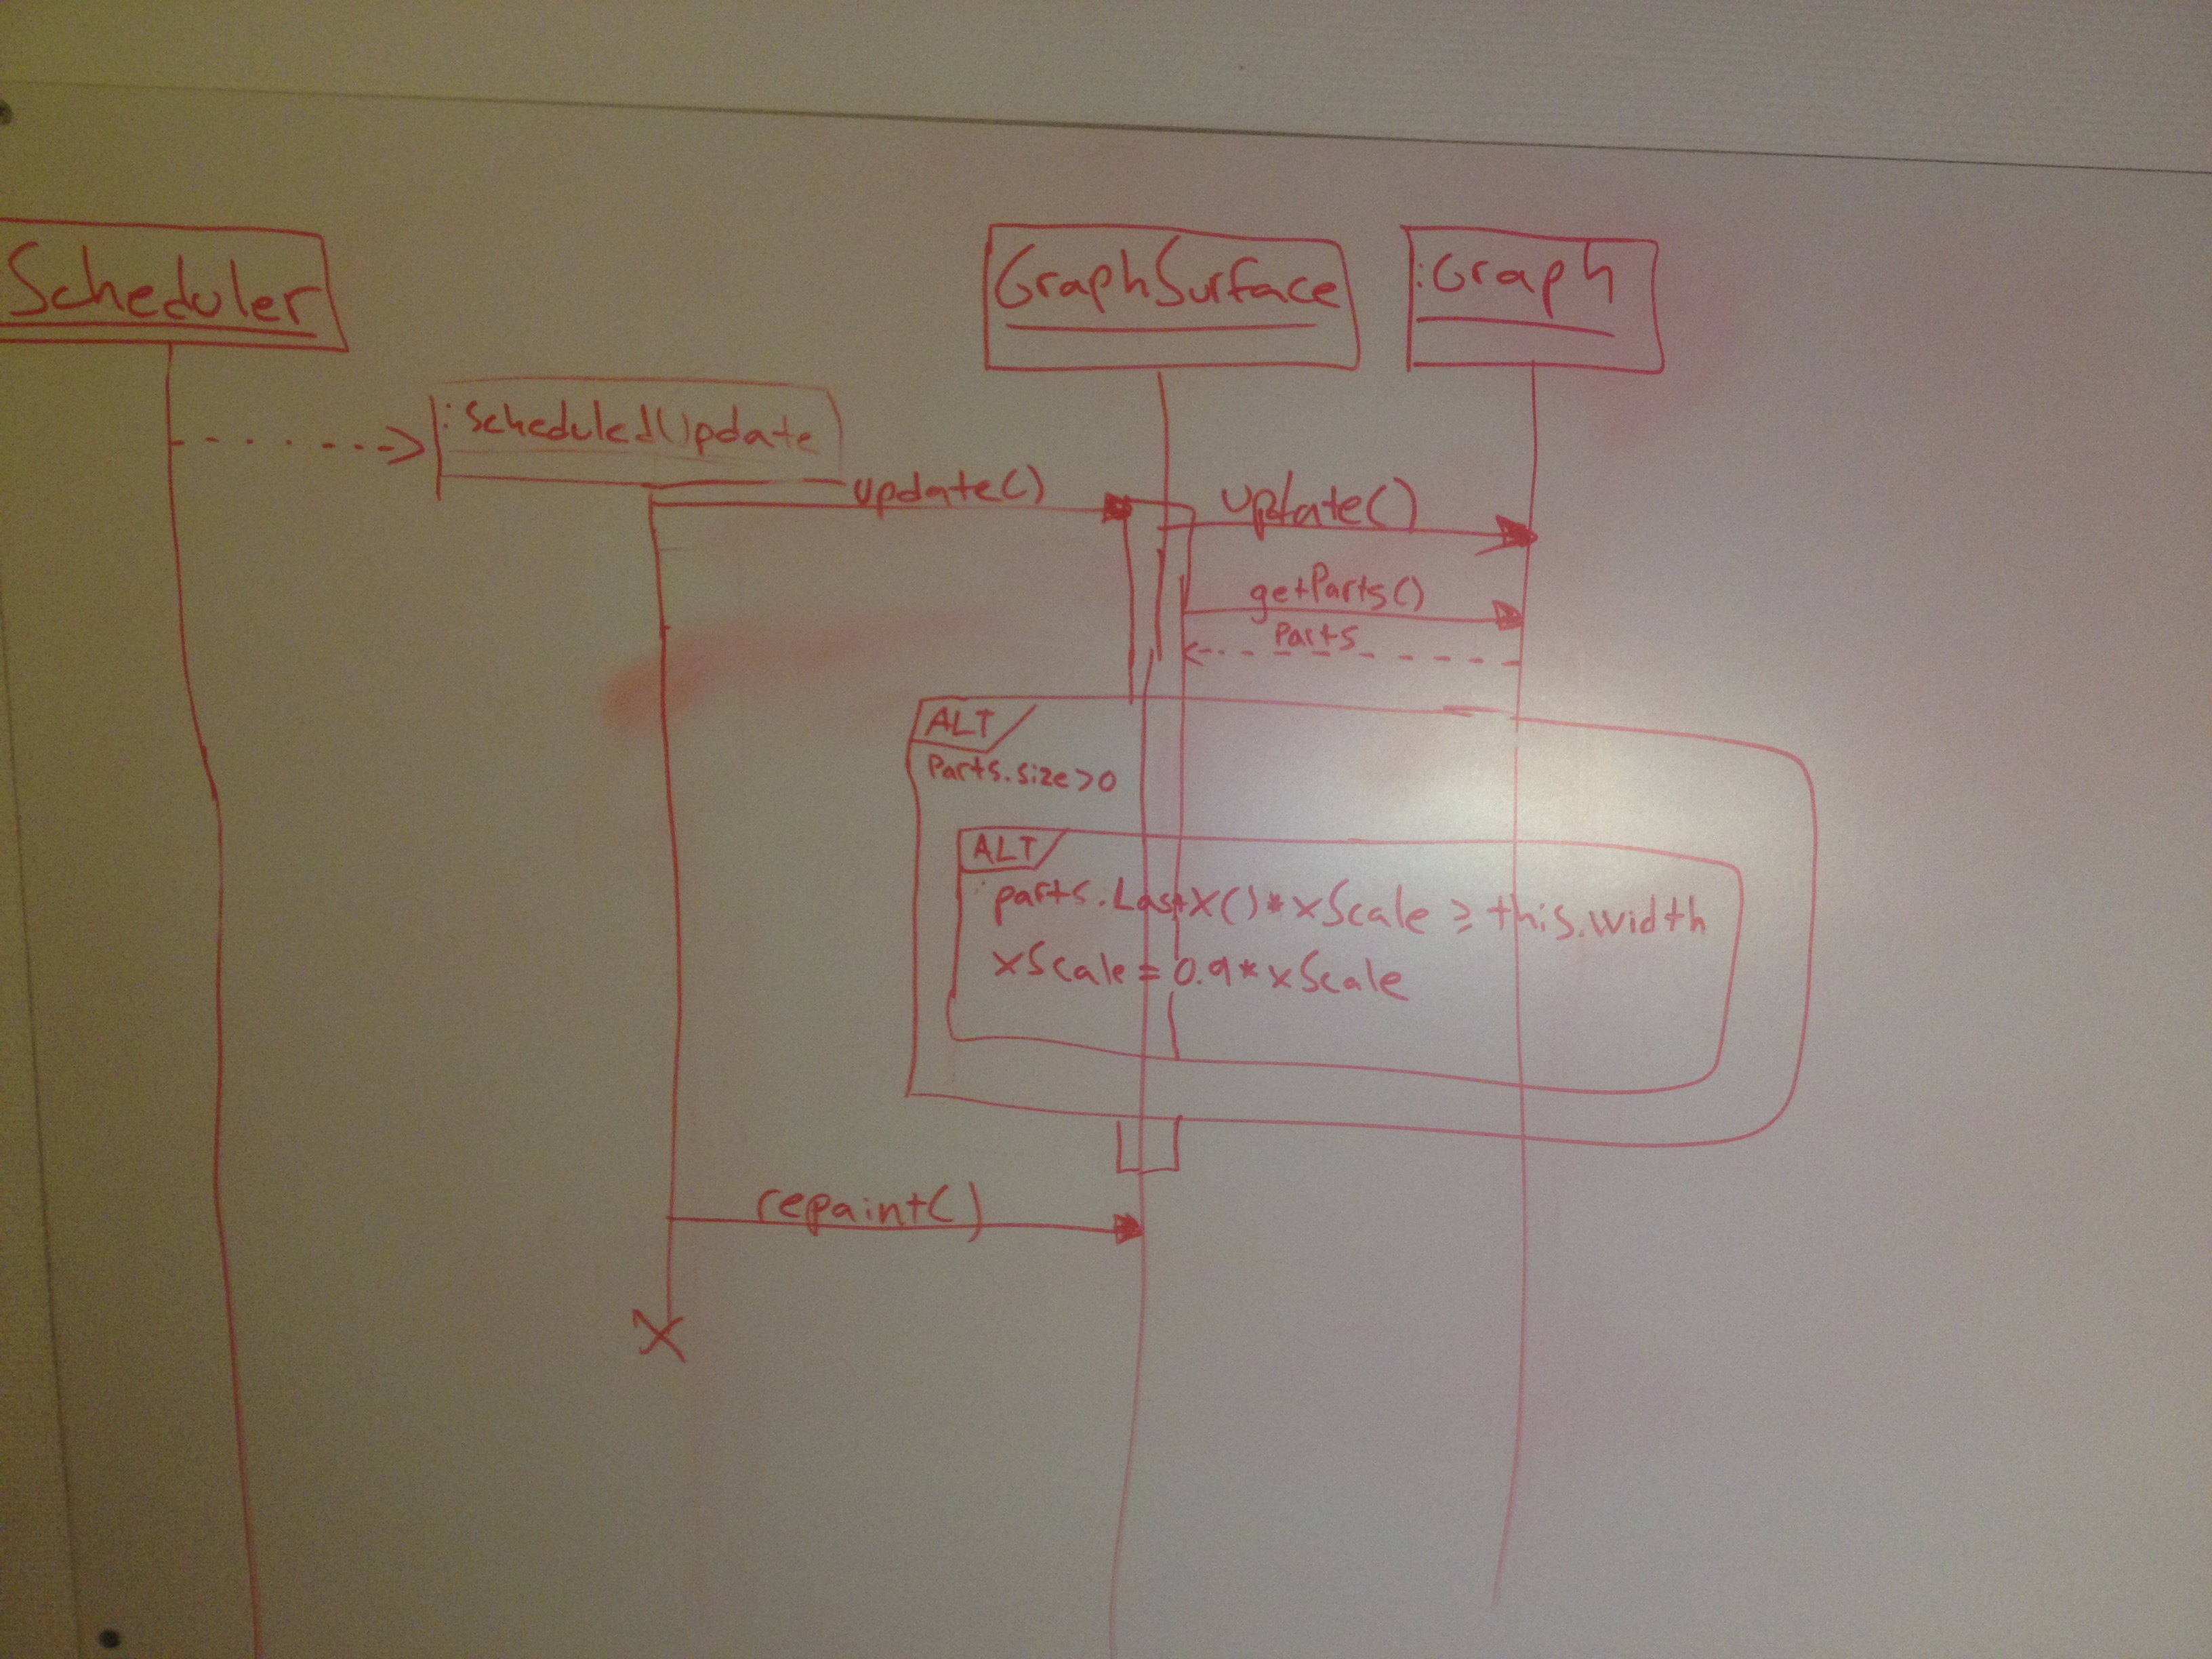 Scheduler
GraphSurface
:Graph
:ScheduledUpdate
update()
update()
getParts()
Parts
ALT
Parts.size>0
ALT
parts.LastX()*xScale ≥ this.width
xScale = 0.9*xScale
repaint()
X